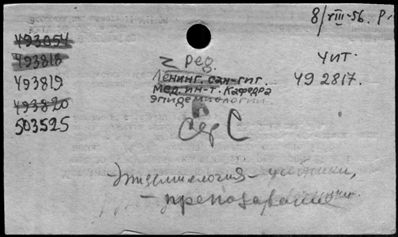 8/VIII-56. Р
493054
493818
493819
493820
503525
2 ред.
Ленинг. сан-гиг.
мед. ин-т. Кафедра
эпидемиологии
Чит.
492817.
Сер С
Эпидемиология - учебники,
- преподавание